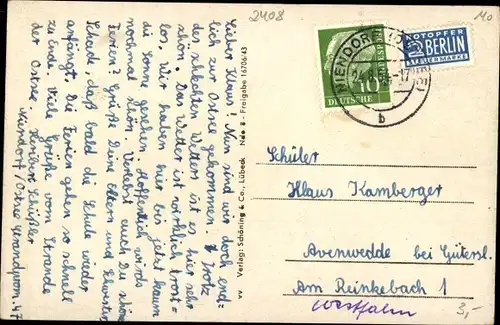 2408
Mo
Lieber Klaus! Nun sind wir doch end-
lich zur Ostsee gekommen. Trotz
des schlechten Wetters ist es hier sehr
schön. Das Wetter ist wirklich trost-
los. Wir haben hier bis jetzt kaum
die Sonne gesehen. Hoffentlich wird's
nochmal schön. Verlebst auch Du schöne
Ferien? Grüße Deine Eltern und Schwester.
Schade, daß bald die Schule wieder
anfängt. Die Ferien gehen so schnell
zu Ende. Viele Grüße vom Strande
der Ostsee
Heribert Schüßler
Niendorf/Ostsee Strandprom. 47
vv Verlag: Schöning & Co., Lübeck Nde 8 - Freigabe 16706/43
NIENDORF (OSTSEE)
24.8.56-17
b
DEUTSCHE BUNDESPOST
10
NOTOPFER
2 BERLIN
STEUERMARKE
Schüler
Klaus Kamberger
Avenwedde bei Gütersl.
Am Reinkebach 1
Westfalen
3,-